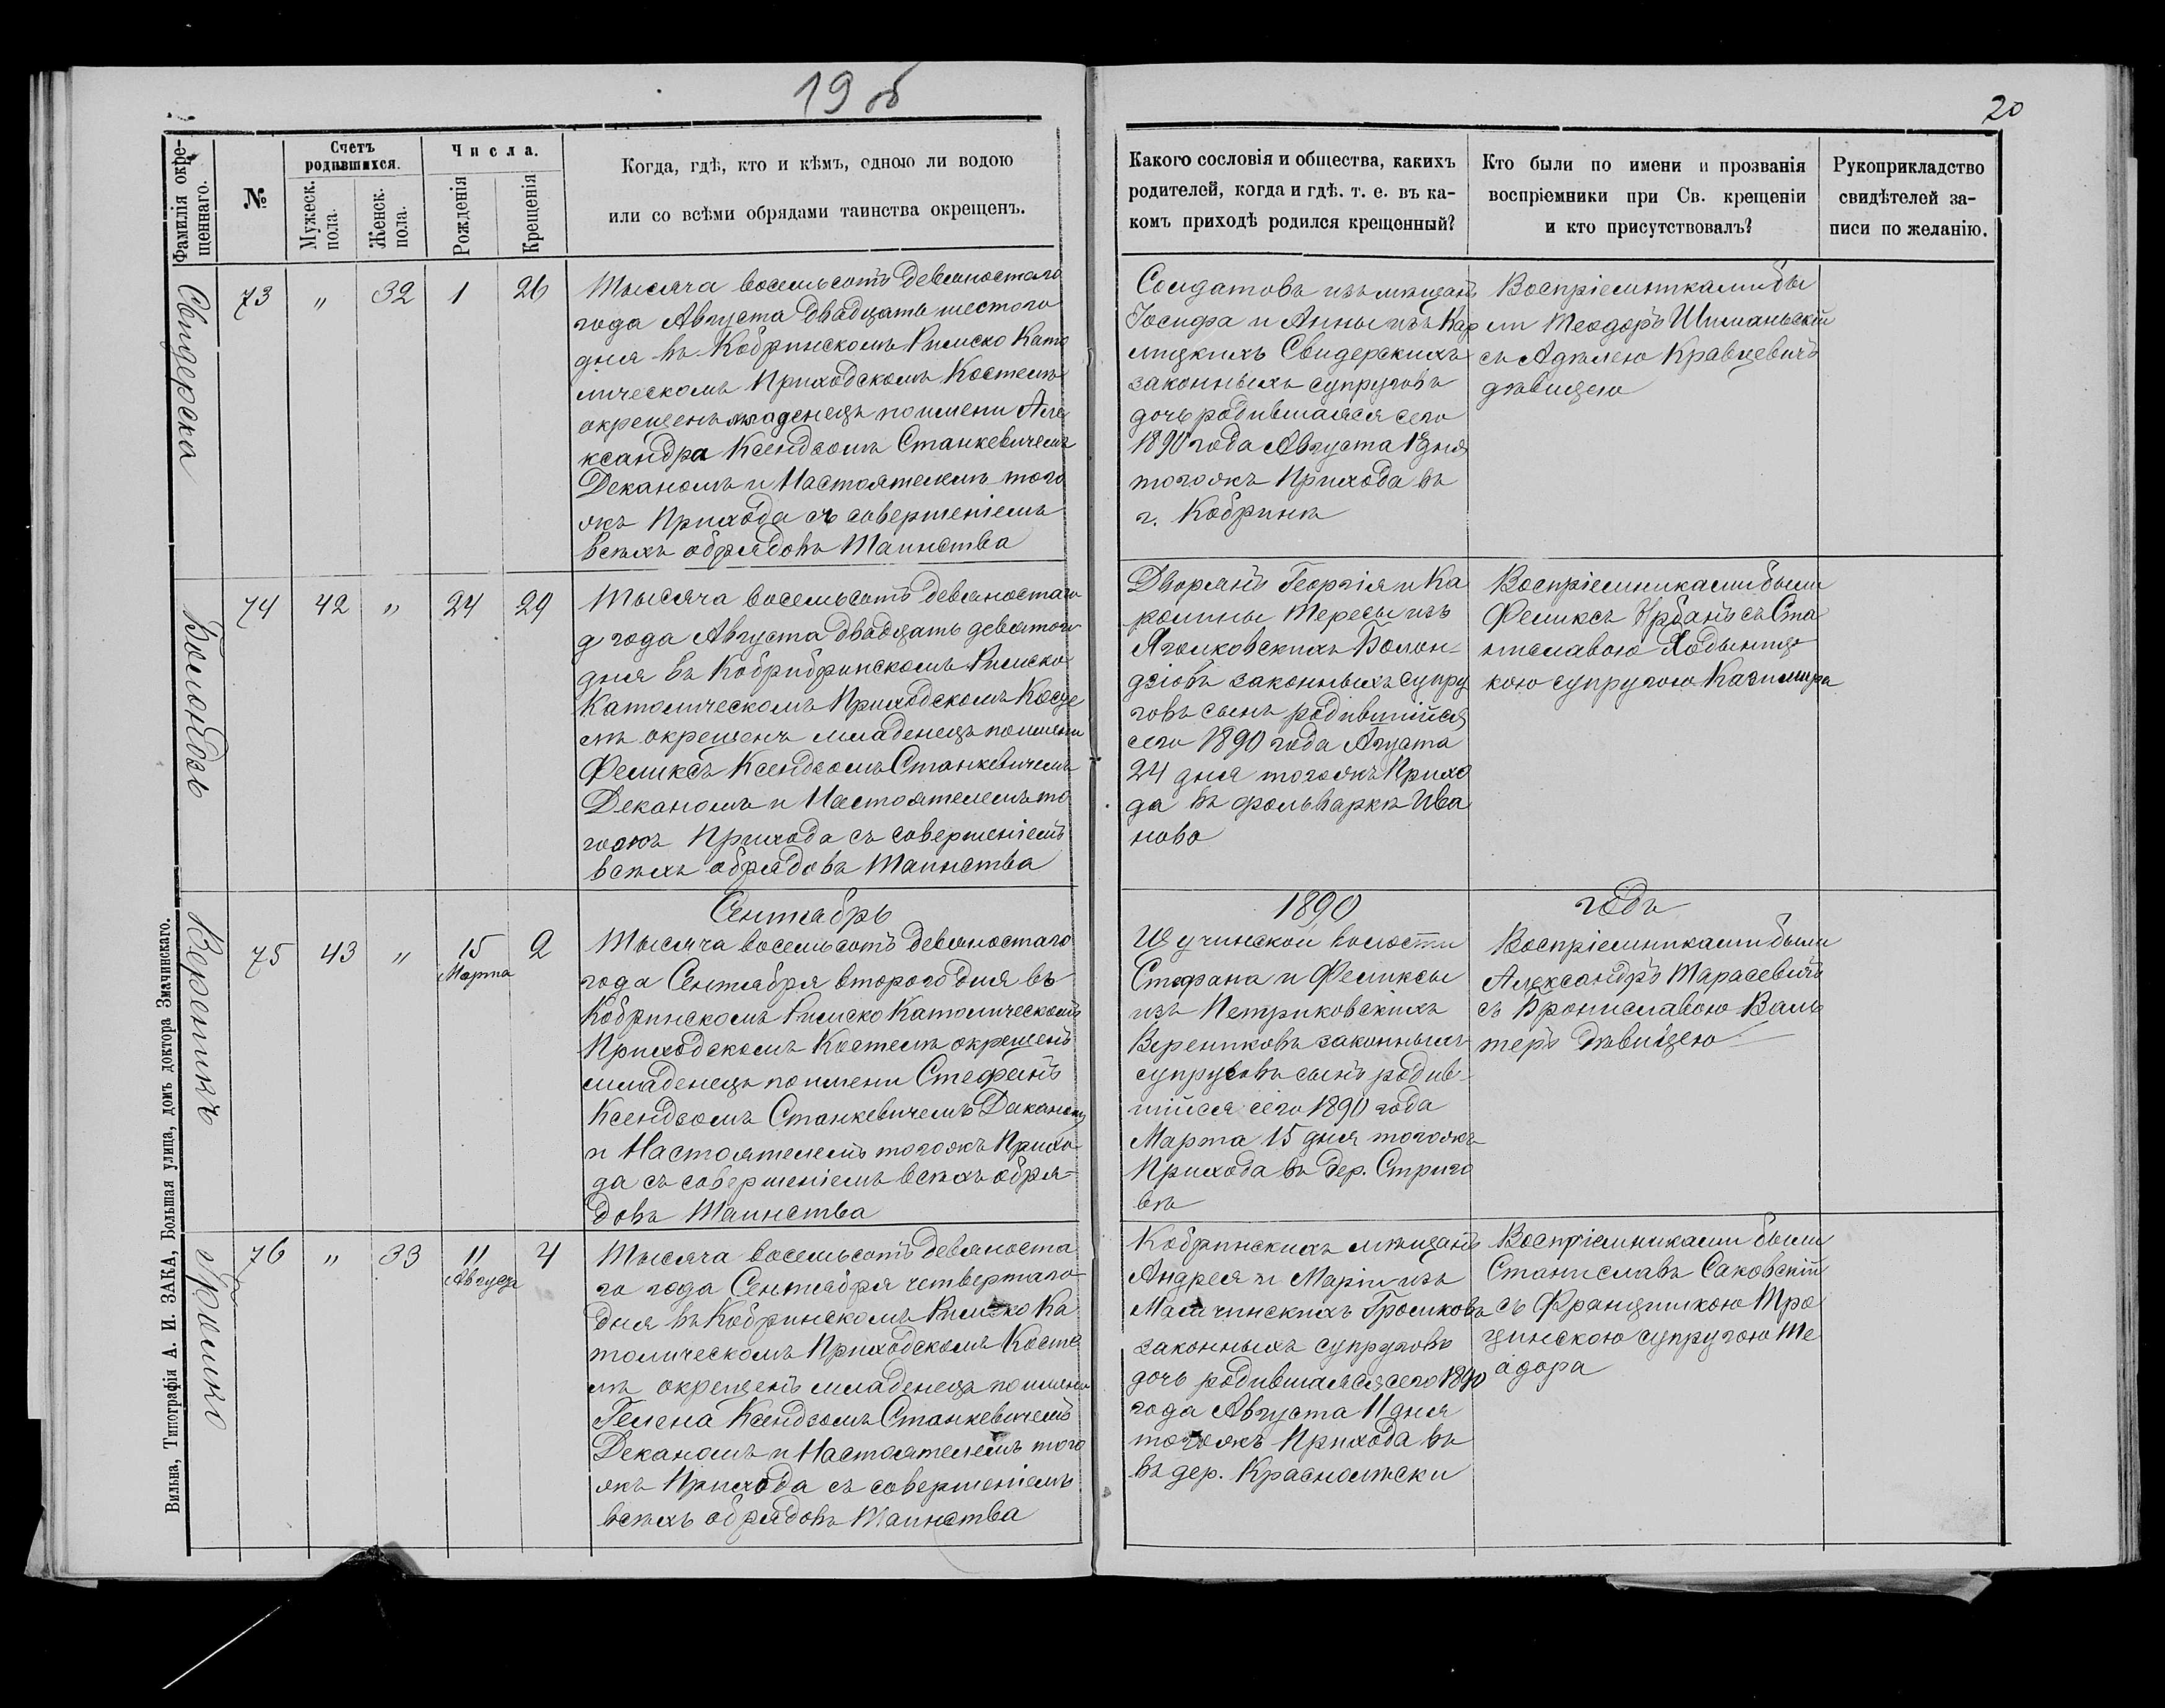 19 об
20
Фамилія окре-
щеннаго.
№
Счетъ
родившихся.
Мужеск.
пола.
Женск.
пола.
Числа.
Рожденія
Крещенія
Когда, гдѣ, кто и кѣмъ, одною ли водою
или со всѣми обрядами таинства окрещенъ.
Какого сословія и общества, какихъ
родителей, когда и гдѣ. т. е. въ ка-
комъ приходѣ родился крещенный?
Кто были по имени и прозванія
воспріемники при Св. крещеніи
и кто присутствовалъ?
Рукоприкладство
свидѣтелей за-
писи по желанію.
Свидерска
73 " 32 1 26
Тысяча восемьсотъ девяностаго
года Августа двадцать шестого
дня въ Кобринскомъ Римско Като
лическомъ Приходскомъ Костелѣ
окрещенъ младенецъ по имени Але
ксандра Ксендзомъ Станкевичемъ
Деканомъ и Настоятелемъ того
жъ Прихода съ совершеніемъ
всѣхъ обрядовъ Таинства
Солдатовъ изъ мѣщанъ
Іосифа и Анны изъ Кар
лицкихъ Свидерскихъ
законныхъ супруговъ
дочь родившаяся сего
1890 года Августа 1 дня
тогожъ Прихода въ
г. Кобринѣ
Воспріемниками бы
ли Теодоръ Шиманьскій
съ Аделею Кравцевичъ
дѣвицею
Болондзь
74 42 " 24 29
Тысяча восемьсотъ девяностаго
д года Августа двадцать девятого
дня въ Кобрибринскомъ Римско
Католическомъ Приходскомъ Косце
лѣ окрещенъ младенецъ по имени
Феликсъ Ксендзомъ Станкевичемъ
Деканомъ и Настоятелемъ то
гожъ Прихода съ совершеніемъ
всѣхъ обрядовъ Таинства
Дворянъ Георгія и Ка
ролины Тересы изъ
Яголковскихъ Болон-
дзіовъ законныхъ супру
говъ сынъ родившійся
сего 1890 года Агуста
24 дня тогожъ Прихо
да въ фольваркѣ Ива
ново
Воспріемниками были
Феликсъ Урбанъ съ Ста
ниславою Ходыниц
кою супругою Казимира
Сентябрь
1890
годъ
Вереникъ
75 43 " 15 2
Марта
Тысяча восемьсотъ девяностаго
года Сентября второго дня въ
Кобринскомъ Римско Католическомъ
Приходскомъ Костелѣ окрещенъ
младенецъ по имени Стефанъ
Ксендзомъ Станкевичемъ Деканомъ
и Настоятелемъ тогожъ Прихо
да съ совершеніемъ всѣхъ обря-
довъ Таинства
волости
Стефана и Феликсы
изъ Петриковскихъ
Верениковъ законныхъ
супруговъ сынъ родив-
шійся сего 1890 года
Марта 15 дня тогожъ
Прихода въ дер. Стриго
вѣ
Воспріемниками были
Александръ Тарасевичъ
съ Брониславою Валь
теръ дѣвицею
Громко
76 " 33 11 4
Августа
Тысяча восемьсотъ девяноста
го года Сентября четвертаго
дня въ Кобринскомъ Римско Ка
толическомъ Приходскомъ Косте
лѣ окрещенъ младенецъ по имени
Гелена Ксендзомъ Станкевичемъ
Деканомъ и Настоятелемъ того
жъ Прихода съ совершеніемъ
всѣхъ обрядовъ Таинства
Кобринскихъ мѣщанъ
Андрея и Маріи изъ
Малечинскихъ Громковъ
законныхъ супруговъ
дочь родившаяся сего 1890
года Августа 11 дня
тогожъ Прихода въ
въ дер. Краснолѣски
Воспріемниками были
Станиславъ Саковскій
съ Францишкою Тро
цинскою супругою Те
адора
Вильна, Типографія А. И. ЗАКА, Большая улица, домъ доктора Змачинскаго.